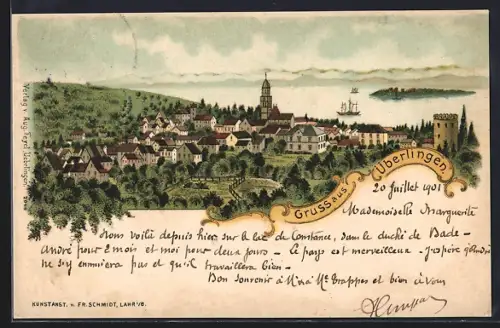 Verlag v. Aug. Feyel, Überlingen.
Gruss aus Überlingen.
20 Juillet 1901
Mademoiselle Marguerite
Nous voilà depuis hier sur le lac de Constance, dans le duché de Bade -
André pour 2 mois et moi pour deux jours - le pays est merveilleux - J'espère qu'André
ne s'y ennuiera pas et qu'il travaillera bien -
Bon souvenir à et bien à vous
KUNSTANST. v. FR. SCHMIDT, LAHR i/B.